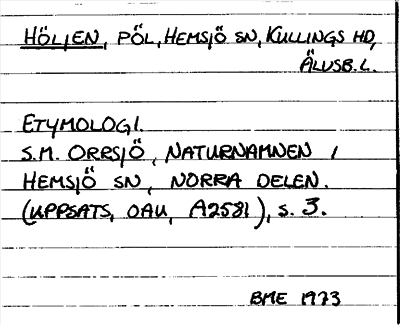 HÖLJEN, PÖL, HEMSJÖ SN, KULLINGS HD,
ÄLVSB.L.
ETYMOLOGI.
S.M. ORRSJÖ, NATURNAMNEN I
HEMSJÖ SN, NORRA DELEN.
(UPPSATS, OAU, A2581), S. 3.
BME 1973